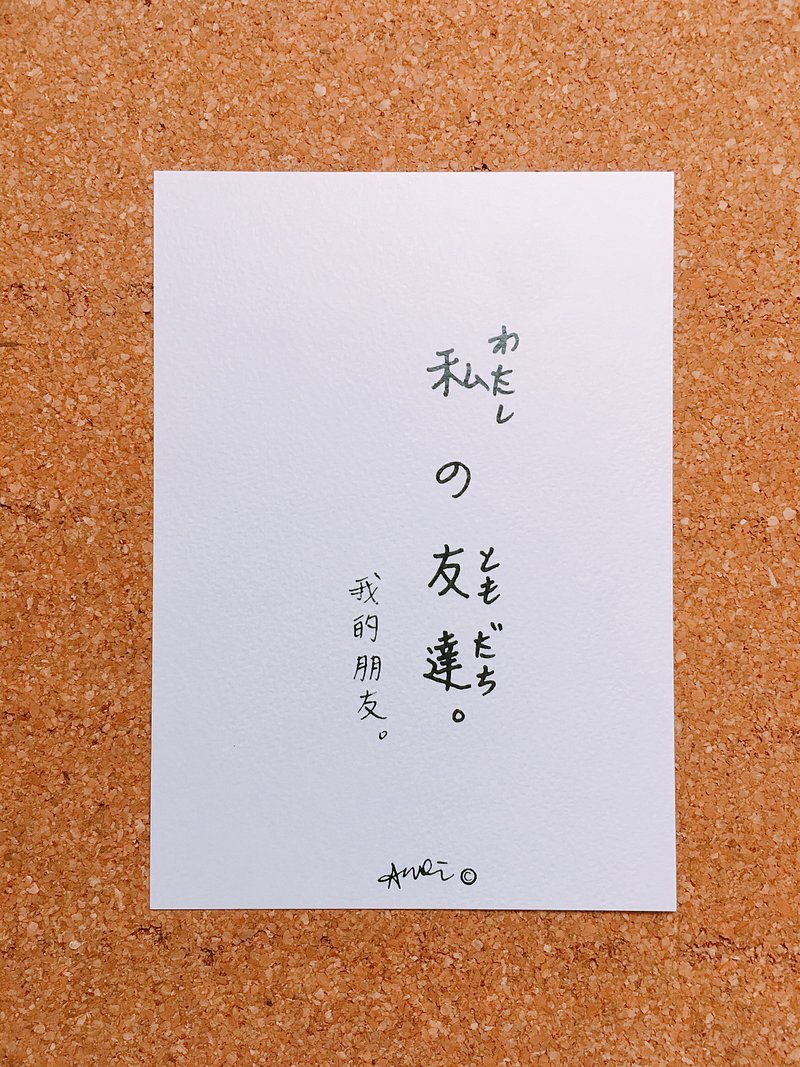 わたし
私の友達。
ともだち
我的朋友。
©